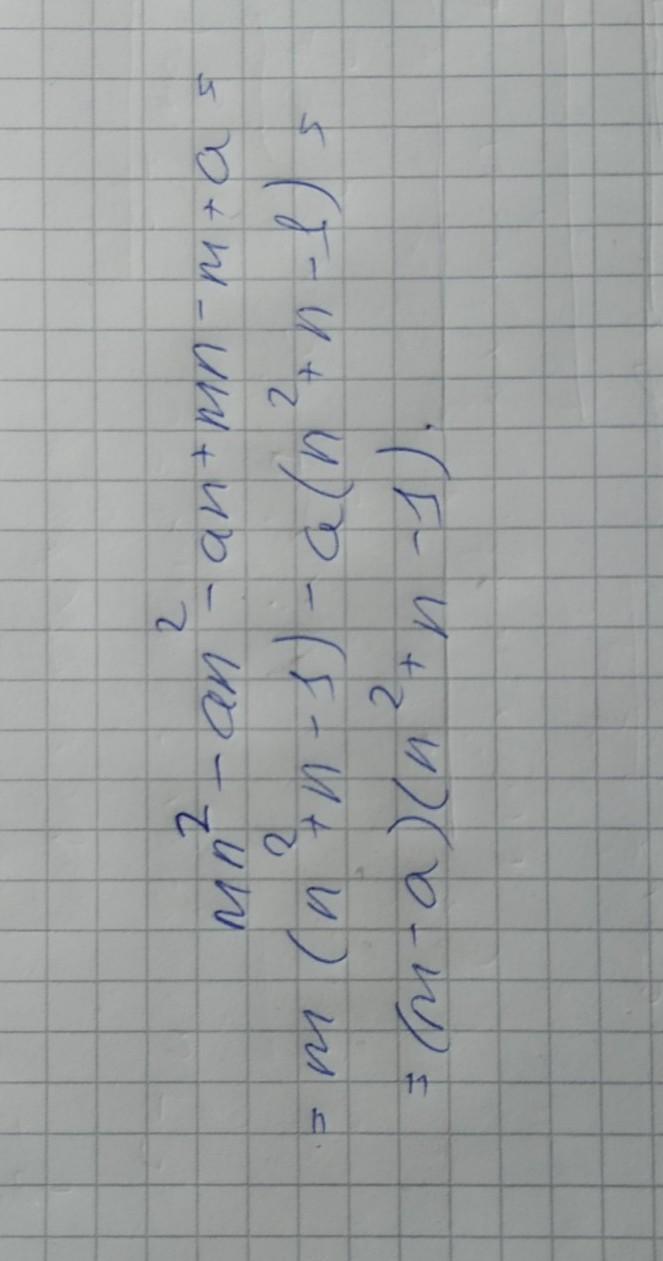 mn² - an² - an + mn - m + a =
= m (n² + n - 1) - a (n² + n - 1) =
= (m - a) (n² + n - 1).